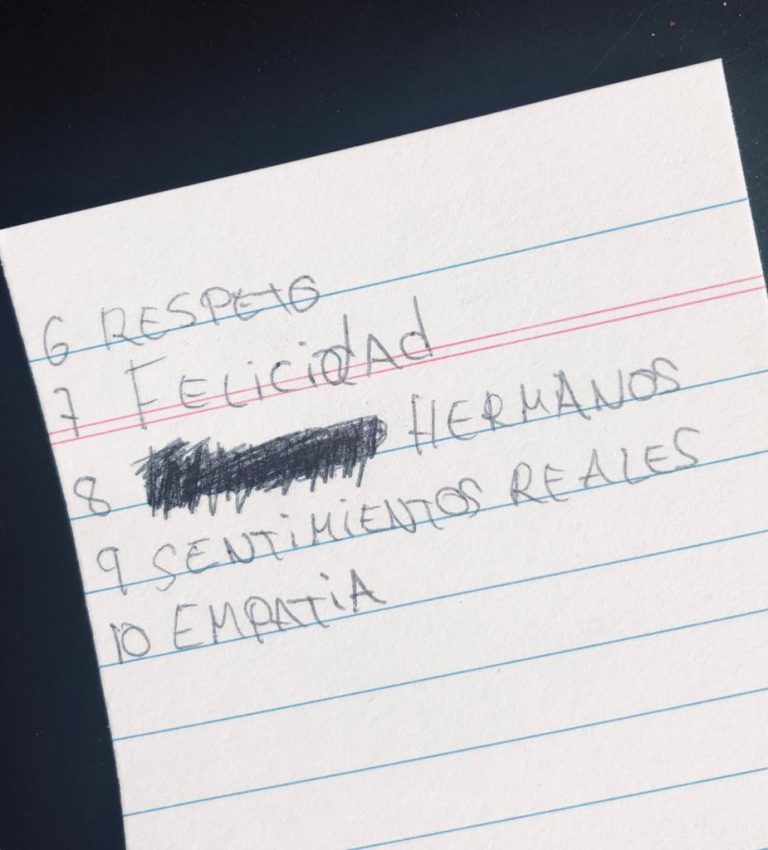 6 RESPETO
7 FELICIDAD
8 HERMANOS
9 SENTIMIENTOS REALES
10 EMPATIA